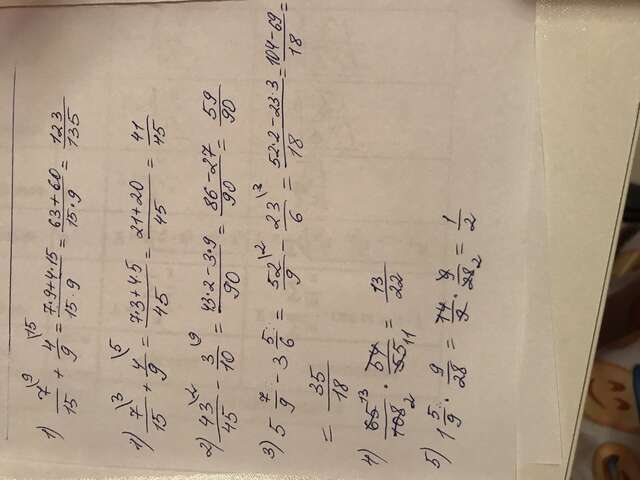 1) 7\9/15 + 4\15/9 = 7·9+4·15/15·9 = 63+60/15·9 = 123/135
1) 7\3/15 + 4\5/9 = 7·3+4·5/45 = 21+20/45 = 41/45
2) 43\2/45 - 3\9/10 = 43·2-3·9/90 = 86-27/90 = 59/90
3) 5 7/9 - 3 5/6 = 52\2/9 - 23\3/6 = 52·2-23·3/18 = 104-69/18 =
= 35/18
4) 65 13/108 2 · 54/55 11 = 13/22
5) 1 5/9 · 9/28 = 14/9 · 9/28 2 = 1/2